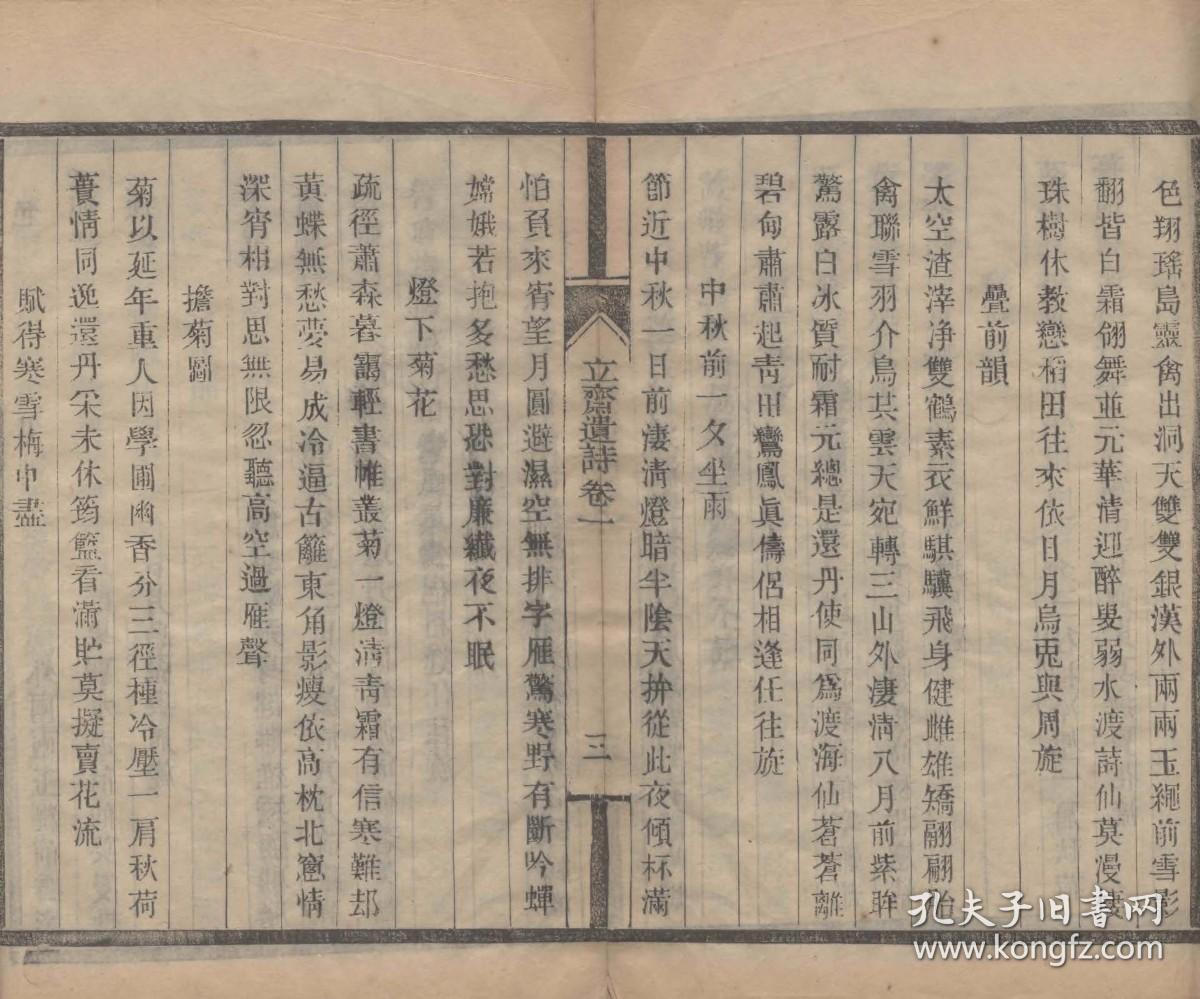 色翔瑤島靈禽出洞天雙雙銀漢外兩兩玉繩前雪影
翻皆白霜翎舞並元華清迎醉晏弱水渡詩仙莫漫淩
珠樹休教戀稻田往來依日月烏兎與周旋
疊前韻
太空渣滓净雙鶴素衣鮮騏驥飛身健雌雄矯翮翩
禽聯雪羽介鳥共雲天宛轉三山外淒淸八月前紫眸
驚露白冰質耐霜元總是還丹使同爲渡海仙蒼蒼離
碧匈肅肅起靑田鸞鳳眞儔侶相逢任往旋
中秋前一夕坐雨
節近中秋一日前淒淸燈暗半陰天拚從此夜傾杯滿
怕負來宵望月圓避濕空無排字雁驚寒野有斷吟蟬
嫦娥若抱多愁思恐對廉纖夜不眠
燈下菊花
疏徑蕭森暮靄輕書帷叢菊一燈淸靑霜有信寒難却
黃蝶無愁夢易成冷逼古籬東角影瘦依高枕北窻情
深宵相對思無限忽聽高空過雁聲
擔菊圖
菊以延年重人因學圃幽香分三徑種冷壓一肩秋荷
蕢情同逸還丹采未休筠籃看滿貯莫擬賣花流
賦得寒雪梅中盡
立齋遺詩卷一
三
孔夫子旧书网
www.kongfz.com